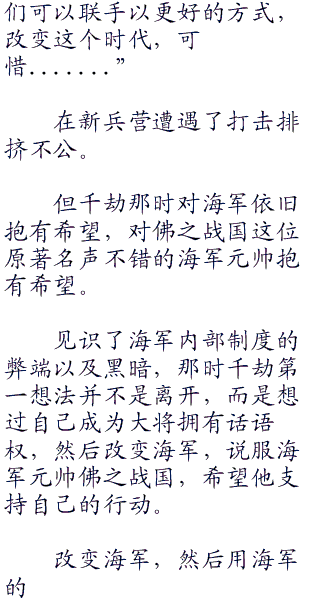 们可以联手以更好的方式，
改变这个时代，可
惜.......”
在新兵营遭遇了打击排
挤不公。
但千劫那时对海军依旧
抱有希望，对佛之战国这位
原著名声不错的海军元帅抱
有希望。
见识了海军内部制度的
弊端以及黑暗，那时千劫第
一想法并不是离开，而是想
过自己成为大将拥有话语
权，然后改变海军，说服海
军元帅佛之战国，希望他支
持自己的行动。
改变海军，然后用海军
的